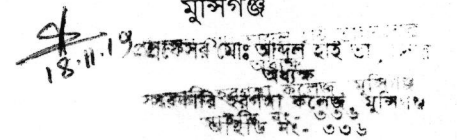 মুন্সিগঞ্জ
18.11.19
প্রফেসর মোঃ আব্দুল হাই তা
অধ্যক্ষ
সরকারি হরগঙ্গা কলেজ, মুন্সিগঞ্জ
আইডি নং- ৩৩৬